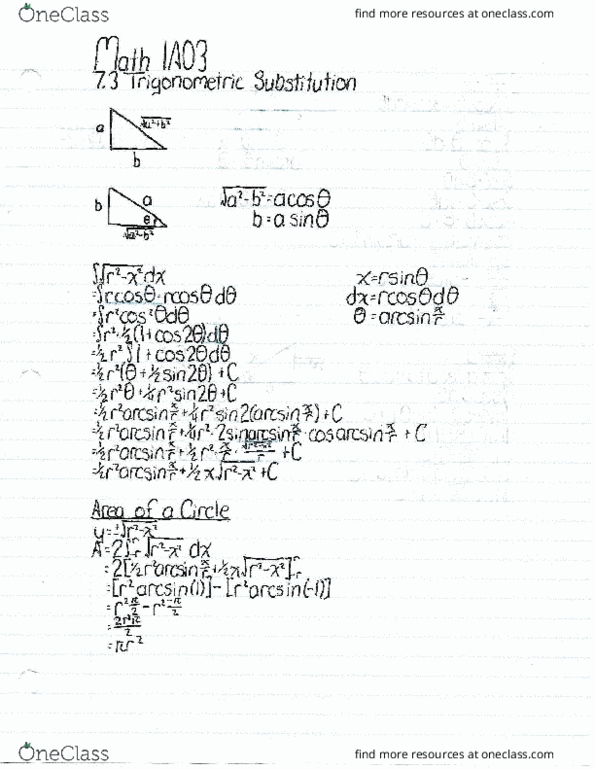 OneClass
find more resources at oneclass.com
Math 1A03
7.3 Trigonometric Substitution
a √a²+b²
b
b a
θ
√a²-b²
√a²-b²=acosθ
b=asinθ
∫√r²-x²dx
x=rsinθ
=∫rcosθ·rcosθdθ
dx=rcosθdθ
=∫r²cos²θdθ
θ=arcsin x/r
=∫r²·½(1+cos2θ)dθ
=½r²∫1+cos2θdθ
=½r²(θ+½sin2θ)+C
=½r²θ+¼r²sin2θ+C
=½r²arcsin x/r+¼r²sin2(arcsin x/r)+C
=½r²arcsin x/r+¼r²·2sinarcsin x/r·cosarcsin x/r+C
=½r²arcsin x/r+½r²·x/r·√r²-x²/r+C
=½r²arcsin x/r+½x√r²-x²+C
Area of a Circle
y=±√r²-x²
A=2∫-r r √r²-x² dx
=2[½r²arcsin x/r+½x√r²-x²]-r r
=[r²arcsin(1)]-[r²arcsin(-1)]
=r²π/2-r²-π/2
=2r²π/2
=πr²
OneClass
find more resources at oneclass.com